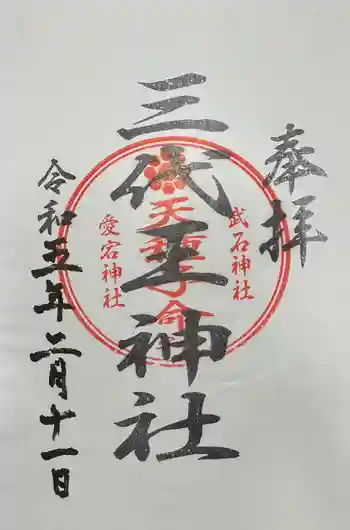 奉拝
武石神社
三代王神社
天種子命
愛宕神社
令和五年二月十一日